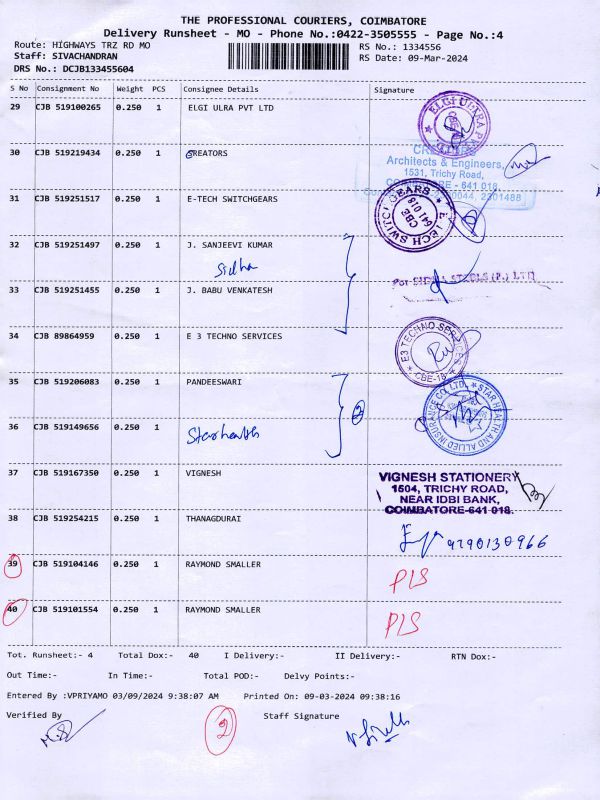 THE PROFESSIONAL COURIERS, COIMBATORE
Delivery Runsheet - MO - Phone No.:0422-3505555 - Page No.:4
Route: HIGHWAYS TRZ RD MO
RS No.: 1334556
Staff: SIVACHANDRAN
RS Date: 09-Mar-2024
DRS No.: DCJB133455604
S No Consignment No Weight PCS Consignee Details Signature
29 CJB 519100265 0.250 1 ELGI ULRA PVT LTD
ELGI ULTRA
30 CJB 519219434 0.250 1 CREATORS
Architects & Engineers,
1531, Trichy Road,
641 018
31 CJB 519251517 0.250 1 E-TECH SWITCHGEARS
E-TECH SWITCHGEARS
CBE
641 018
32 CJB 519251497 0.250 1 J. SANJEEVI KUMAR
Sidha
33 CJB 519251455 0.250 1 J. BABU VENKATESH
34 CJB 89864959 0.250 1 E 3 TECHNO SERVICES
E3 TECHNO SERVICES
CBE-18
35 CJB 519206083 0.250 1 PANDEESWARI
2
STAR HEALTH AND ALLIED INSURANCE CO. LTD.
36 CJB 519149656 0.250 1 Starhealth
37 CJB 519167350 0.250 1 VIGNESH
VIGNESH STATIONERY
1504, TRICHY ROAD,
NEAR IDBI BANK,
COIMBATORE-641 018.
38 CJB 519254215 0.250 1 THANAGDURAI
9290130966
39 CJB 519104146 0.250 1 RAYMOND SMALLER
PLS
40 CJB 519101554 0.250 1 RAYMOND SMALLER
PLS
Tot. Runsheet:- 4 Total Dox:- 40 I Delivery:- II Delivery:- RTN Dox:-
Out Time:- In Time:- Total POD:- Delvy Points:-
Entered By :VPRIYAMO 03/09/2024 9:38:07 AM Printed On: 09-03-2024 09:38:16
Verified By Staff Signature
2